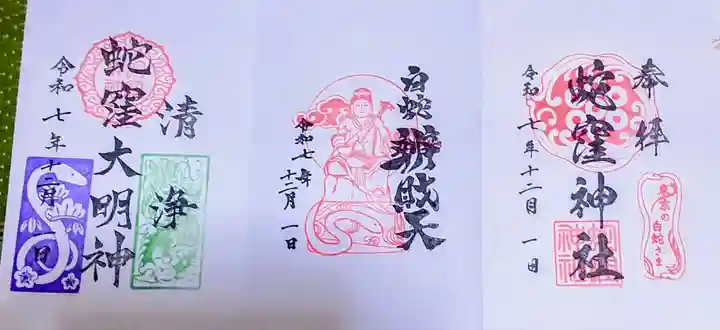 奉拝
蛇窪神社
令和七年十二月一日
東京の白蛇さま
白蛇辨財天
令和七年十二月一日
清浄
蛇窪大明神
令和七年十二月一日